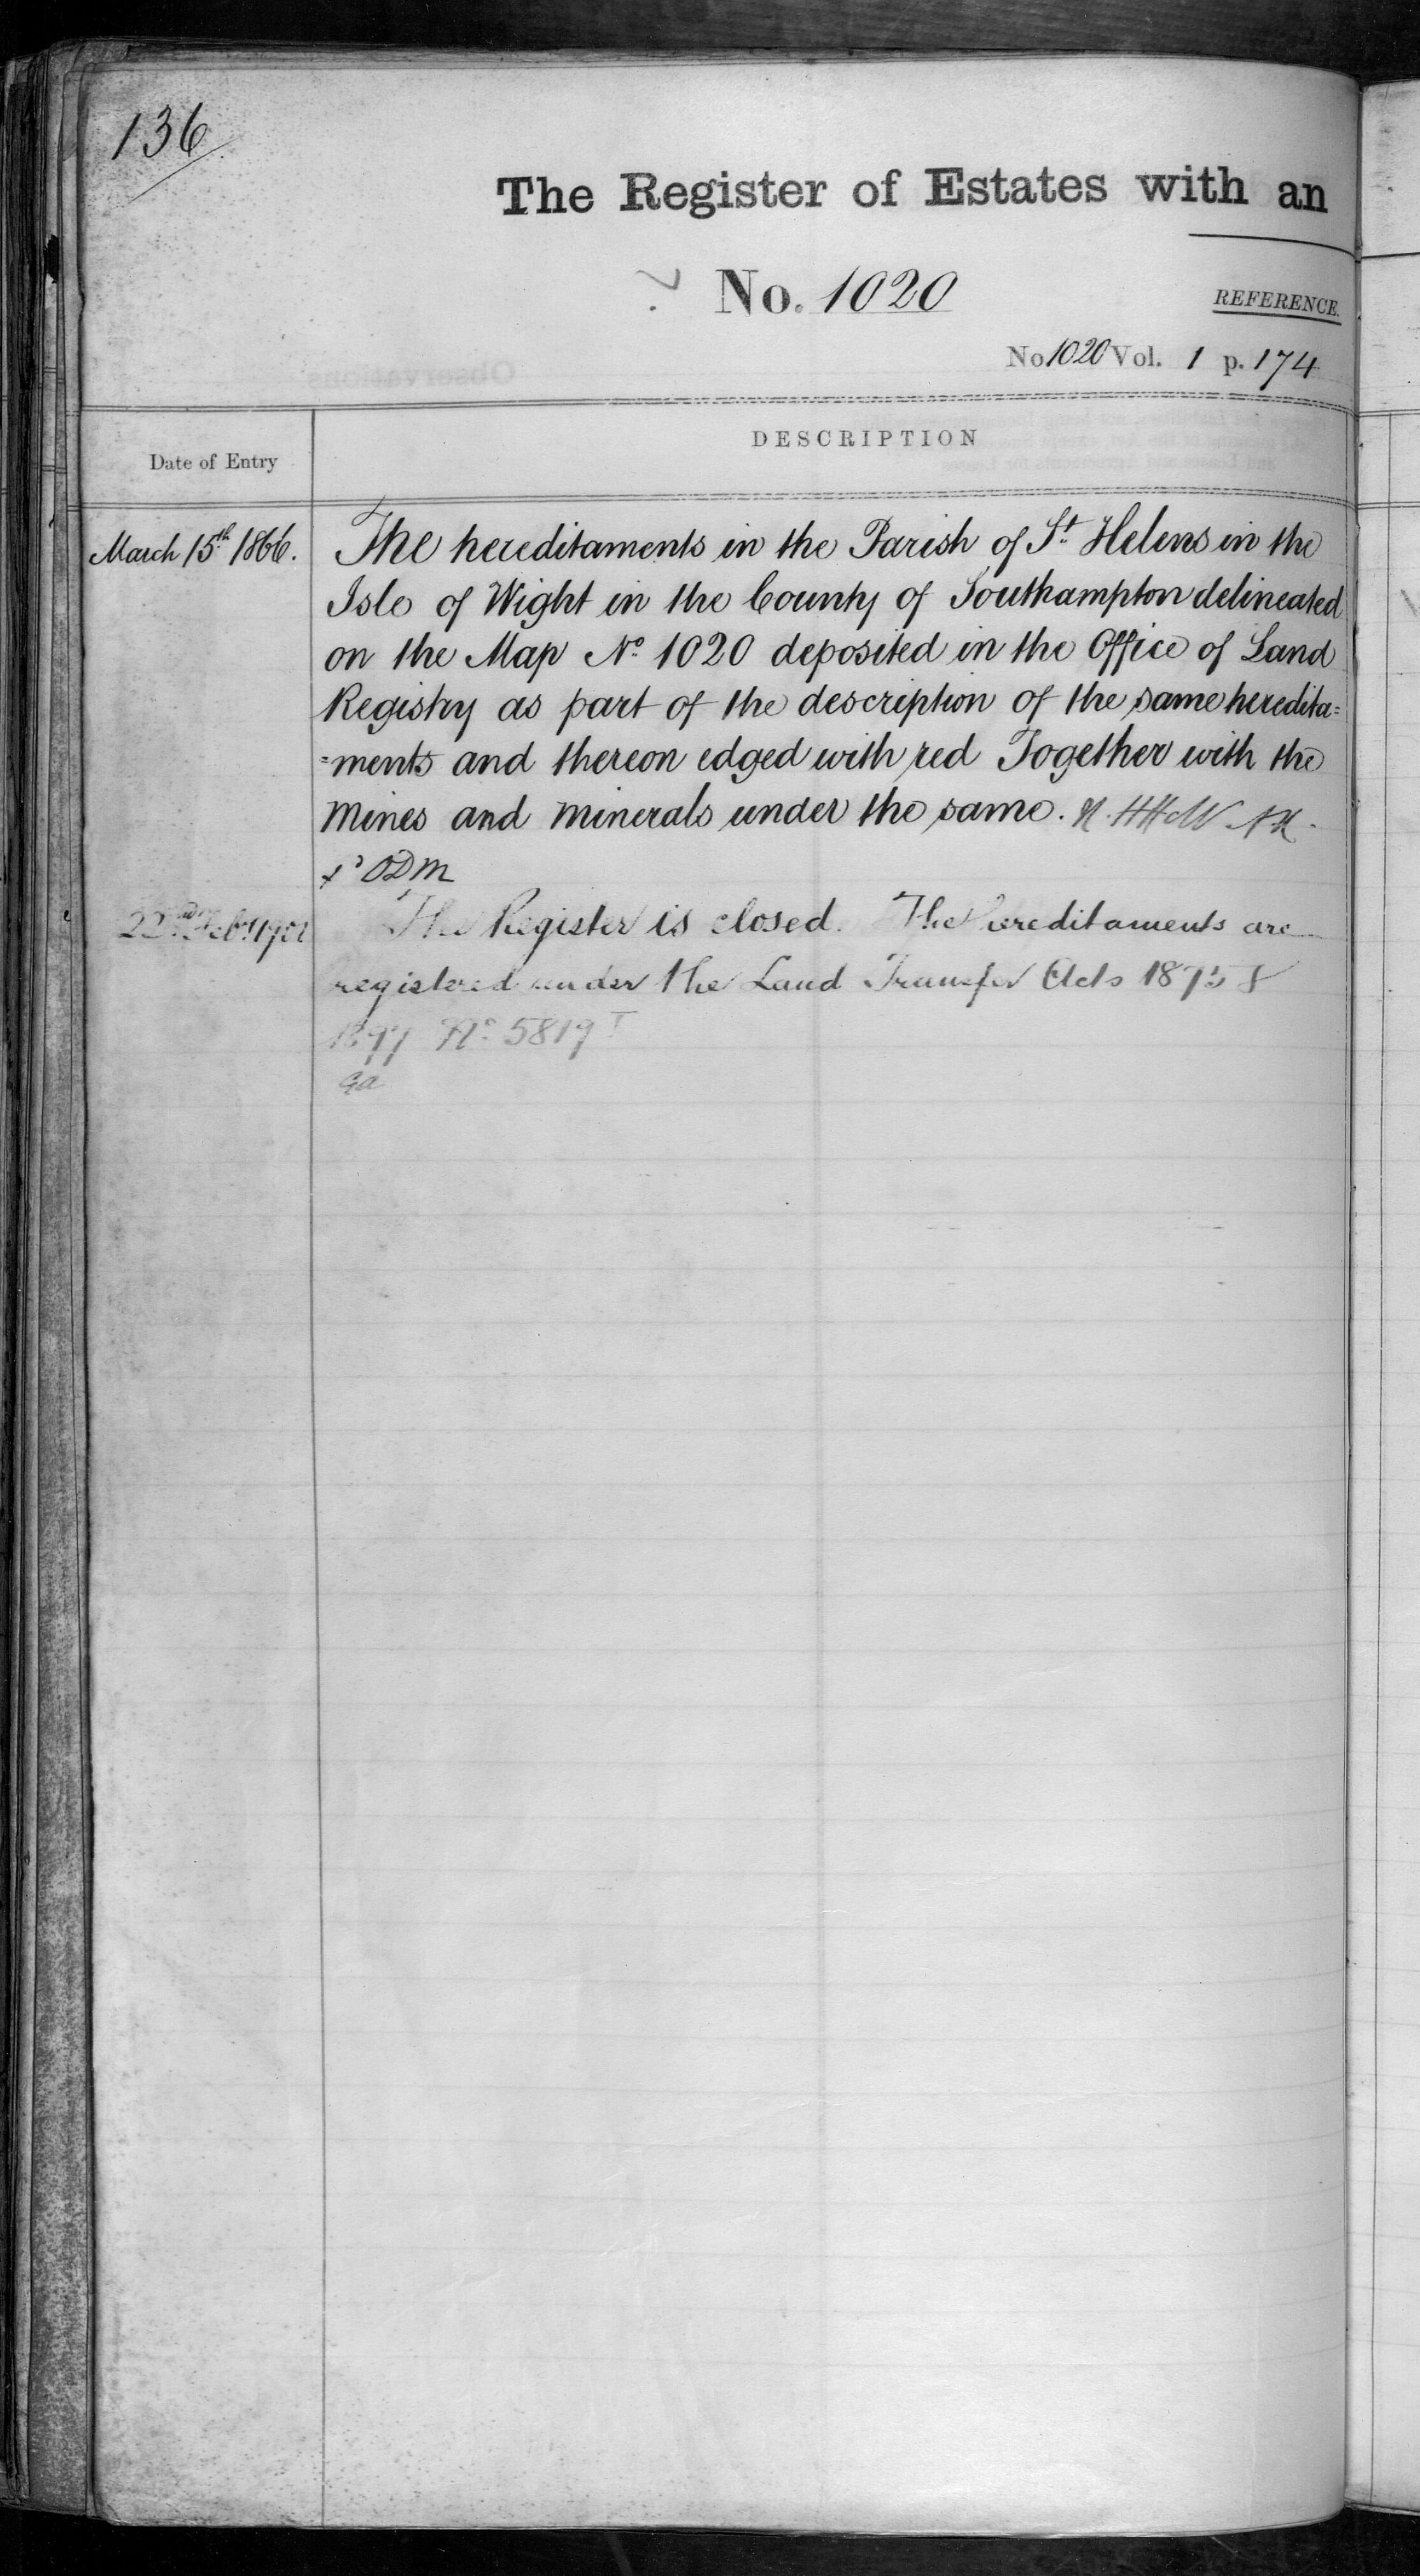 136
The Register of Estates with an
No. 1020
REFERENCE.
No 1020 Vol. 1 p. 174
Date of Entry
DESCRIPTION
March 15th 1866.
The hereditaments in the Parish of St Helens in the
Isle of Wight in the County of Southampton delineated
on the Map No 1020 deposited in the Office of Land
Registry as part of the description of the same heredita=
=ments and thereon edged with red Together with the
Mines and Minerals under the same.
ODM
22nd Feby
The Register is closed. The Hereditaments are
registered under the Land Transfer Acts 1875 &
1897 No 5819